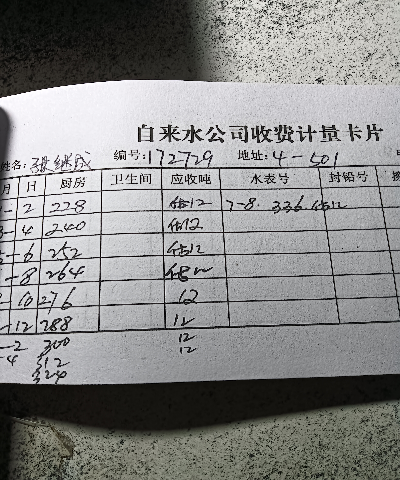 自来水公司收费计量卡片
姓名:张继成 编号:172729 地址:4-501
月 日 厨房 卫生间 应收吨 水表号 封铅号
-2 228 估12 7-8 336 估12
-4 240 估12
-6 252 估12
-8 264
10 276 12
-12 288 12
-2 300 12
-4 312 12
324